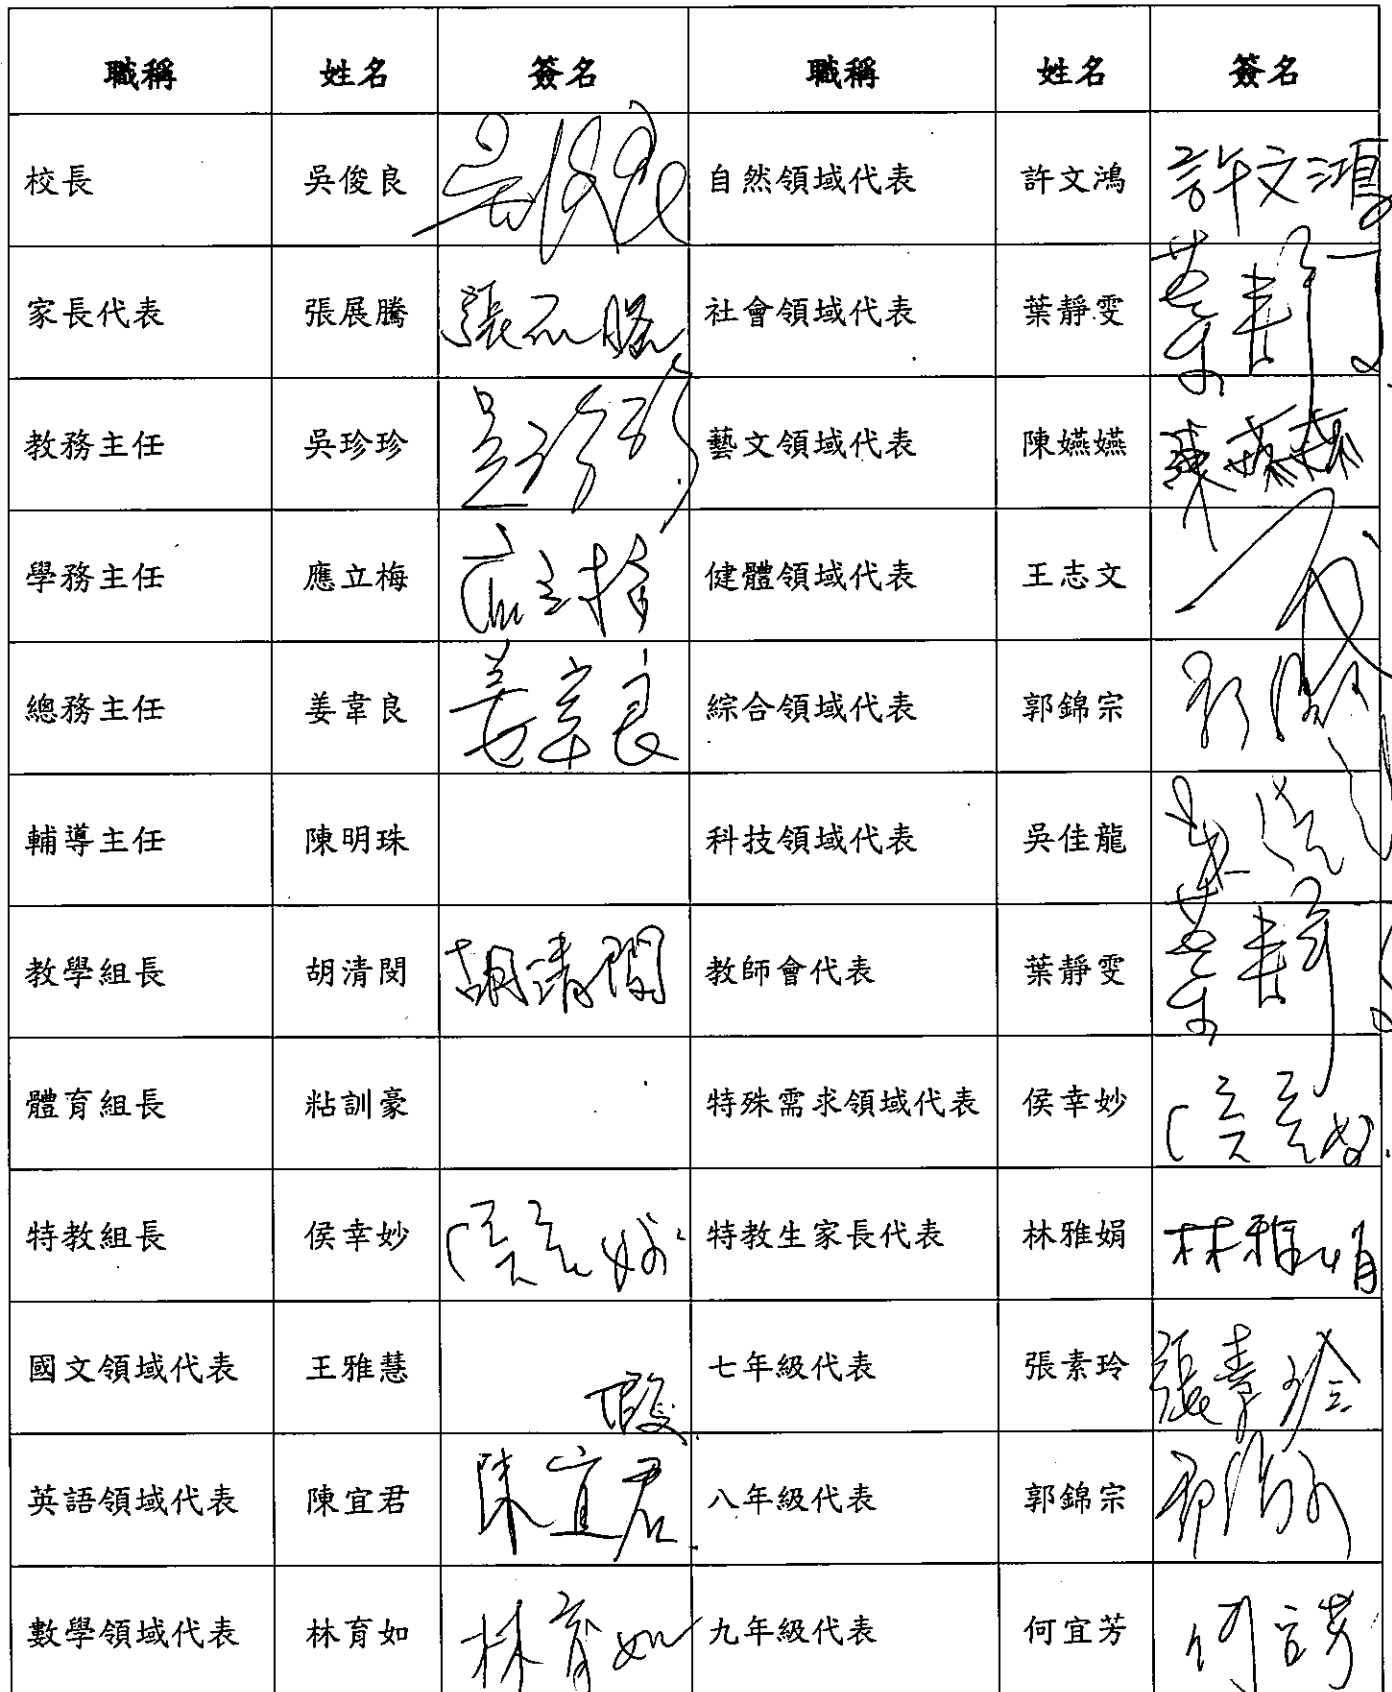 職稱 姓名 簽名 職稱 姓名 簽名
校長 吳俊良 吳俊良 自然領域代表 許文鴻 許文鴻
家長代表 張展騰 張 社會領域代表 葉靜雯 葉靜雯
教務主任 吳珍珍 吳珍珍 藝文領域代表 陳嬿嬿 陳嬿嬿
學務主任 應立梅 應立梅 健體領域代表 王志文
總務主任 姜韋良 姜韋良 綜合領域代表 郭錦宗 郭錦宗
輔導主任 陳明珠 科技領域代表 吳佳龍
教學組長 胡清閔 胡清閔 教師會代表 葉靜雯 葉靜雯
體育組長 粘訓豪 特殊需求領域代表 侯幸妙 侯幸妙
特教組長 侯幸妙 侯幸妙 特教生家長代表 林雅娟 林雅娟
國文領域代表 王雅慧 假 七年級代表 張素玲 張素玲
英語領域代表 陳宜君 陳宜君 八年級代表 郭錦宗 郭錦宗
數學領域代表 林育如 林育如 九年級代表 何宜芳 何宜芳